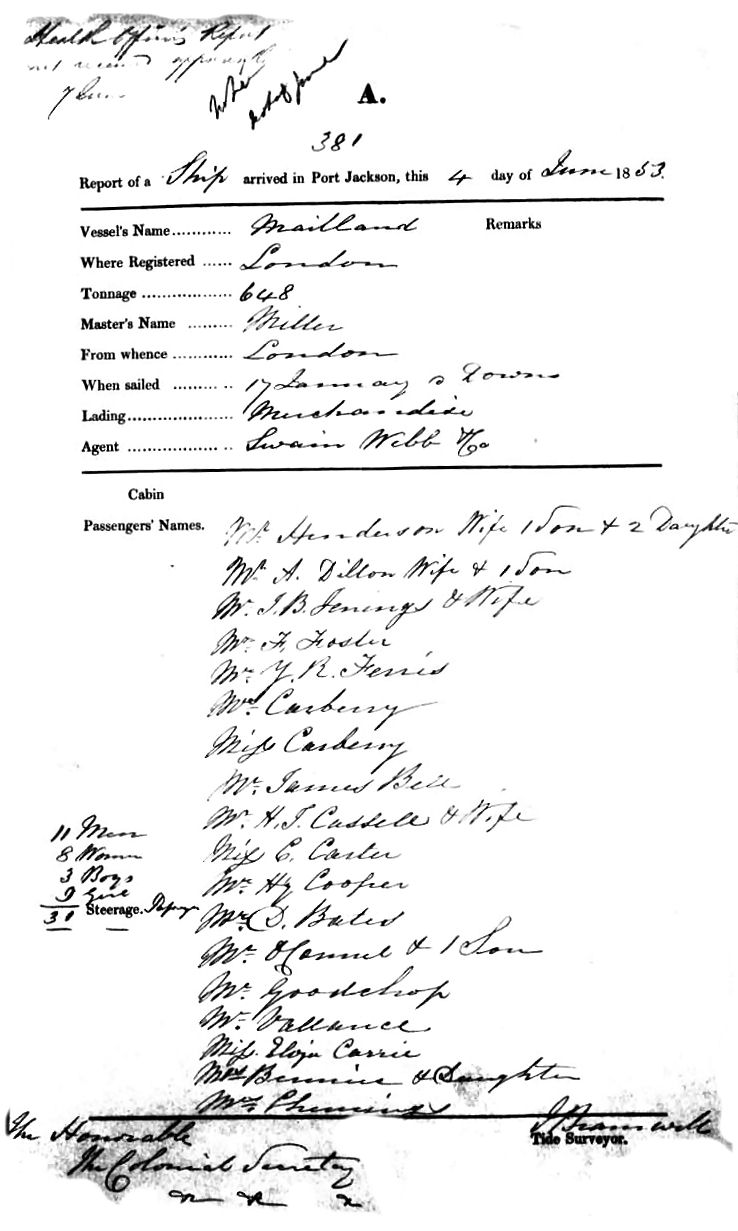 Health Officer's Report
not received
7 June
A.
381
Report of a Ship arrived in Port Jackson, this 4 day of June 1853.
Vessel's Name............ Maitland Remarks
Where Registered ...... London
Tonnage ................. 648
Master's Name ......... Miller
From whence ............ London
When sailed ......... .. 17 January Downs
Lading..................... Merchandise
Agent .................. .. Swain Webb & Co
Cabin
Passengers' Names. Mr. Henderson Wife 1 Son & 2 Daughter
Mr A. Dillon Wife & 1 Son
Mr. J. B. Jenings & Wife
Mr. F. Foster
Mr. Y. R. Ferris
Mrs Carberry
Miss Carberry
Mr. James Bell
Mr. H. J. Cassell & Wife
Miss C. Carter
Mr. Hy Cooper
Mr. D. Bates
Mr. O'Connel & 1 Son
Mr. Goodchap
Mr. Vallance
Miss. Eliza Carrie
Mrs Bennie & Daughter
Mrs
11 Men
8 Women
3 Boys
9 Girl
31 Steerage.
Tide Surveyor.
The Honorable
The Colonial Secretary